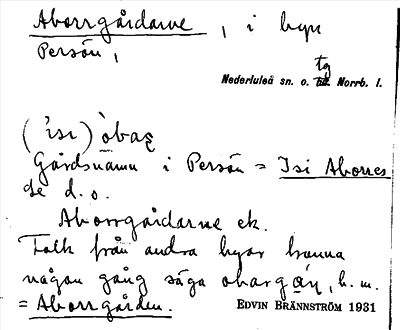 Aborrgårdarne, i byn
Persön,
tg
Nederluleå sn. o. td. Norrb. l.
('isɩ) òbaʂ
Gårdsnamn i Persön = Isi Aborres
se d. o.
Aborrgårdarne ek.
Folk från andra byar kunna
någon gång säga abargan, h. m.
= Aborrgården.
EDVIN BRÄNNSTRÖM 1931